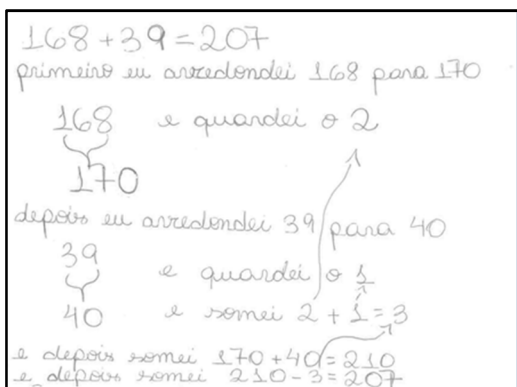 168 + 39 = 207
primeiro eu arredondei 168 para 170
168 e guardei o 2
170
depois eu arredondei 39 para 40
39
e guardei o 1
40 e somei 2 + 1 = 3
e depois somei 170 + 40 = 210
e depois somei 210 - 3 = 207